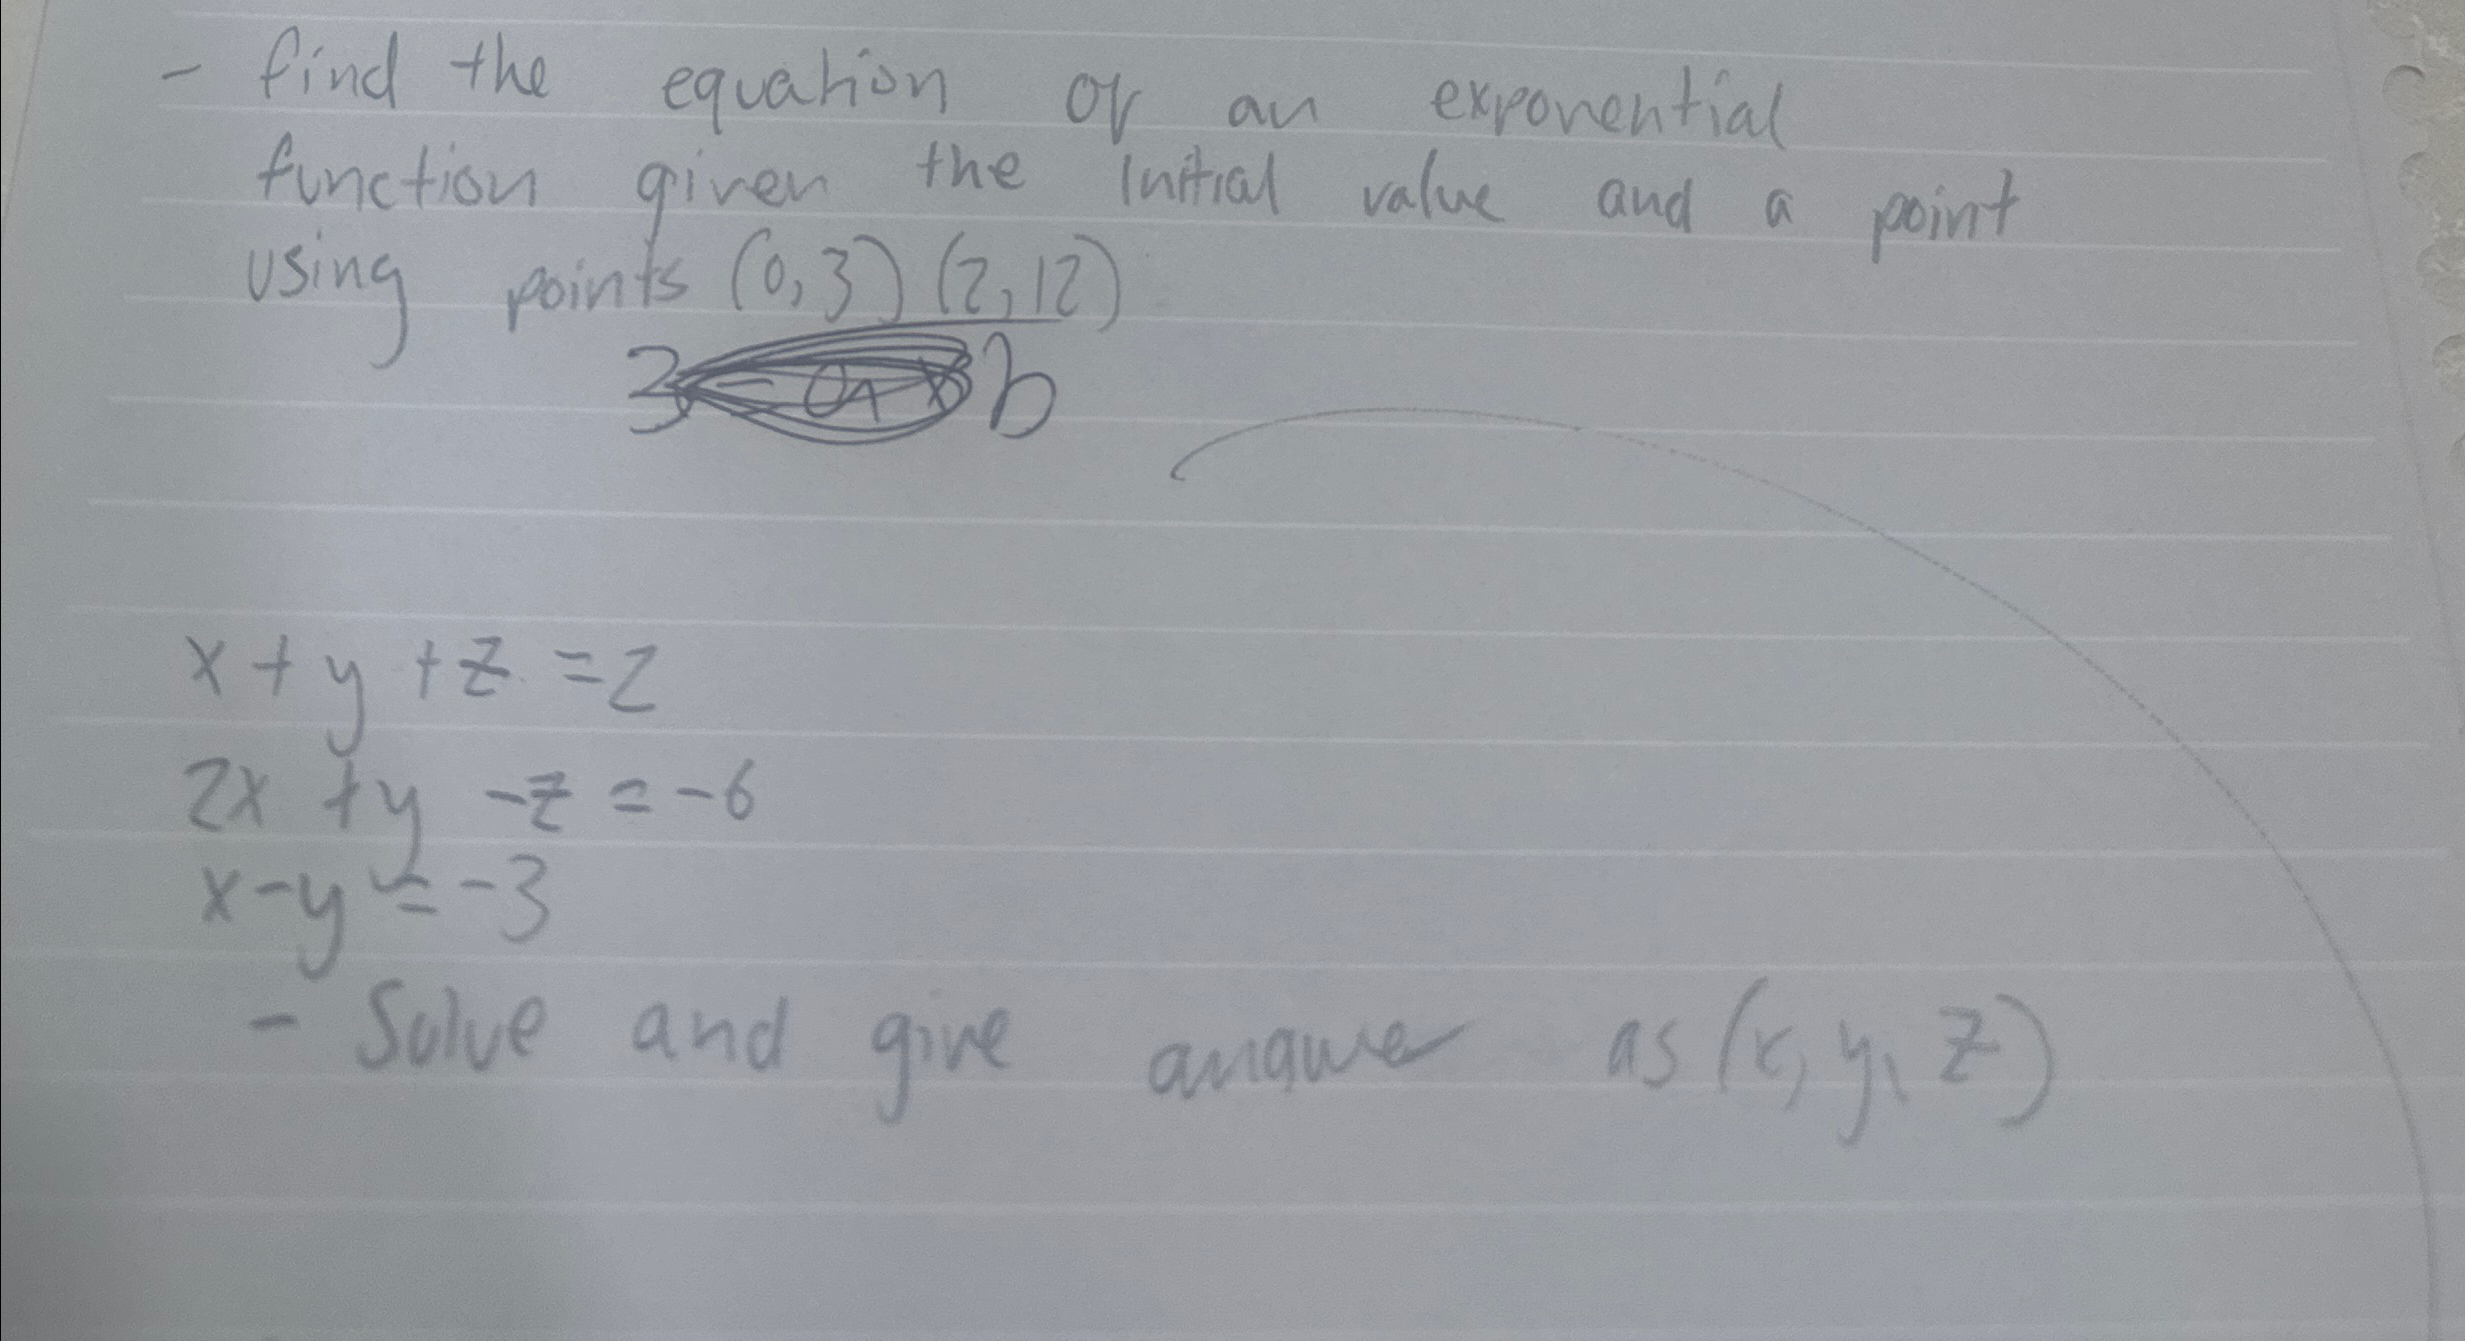 - find the equation of an exponential
function given the initial value and a point
using points (0,3) (2,12)
3 b
x + y + z = 2
2x + y - z = -6
x - y = -3
- Solve and give answer as (x, y, z)